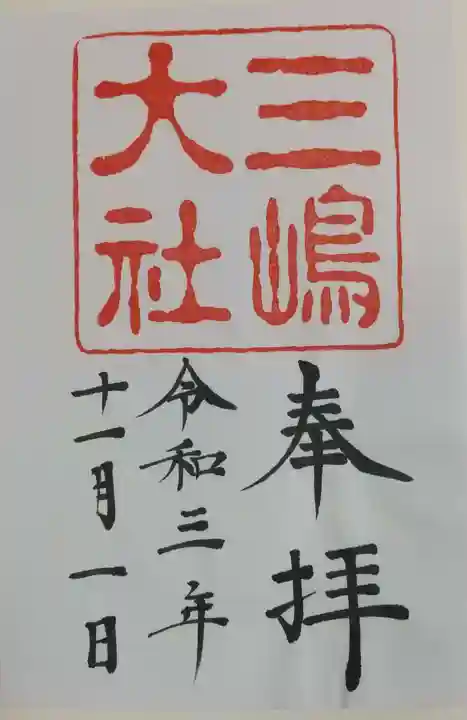 三嶋
大社
奉拝
令和三年
十一月一日